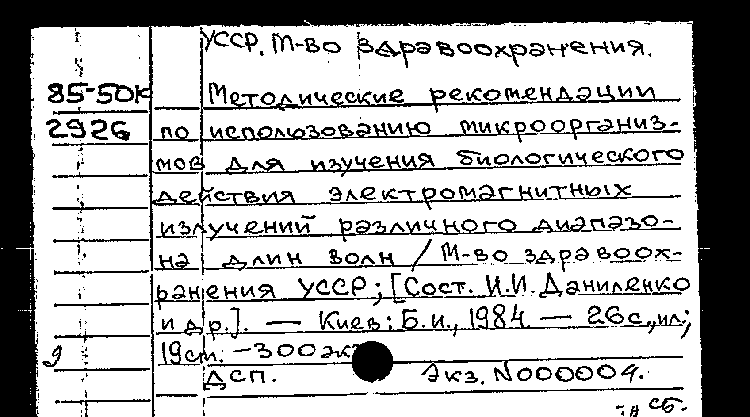 УССР. М-во здравоохранения.
85-50К Методические рекомендации
2926 по использованию микроорганиз-
мов для изучения биологического
действия электромагнитных
излучений различного диапазо-
на длин волн / М-во здравоох-
ранения УССР; [Сост. И.И. Даниленко
и др.]. — Киев: Б.и., 1984. — 26с., ил.;
19см. — 300экз
ДСП. Экз. N000004.